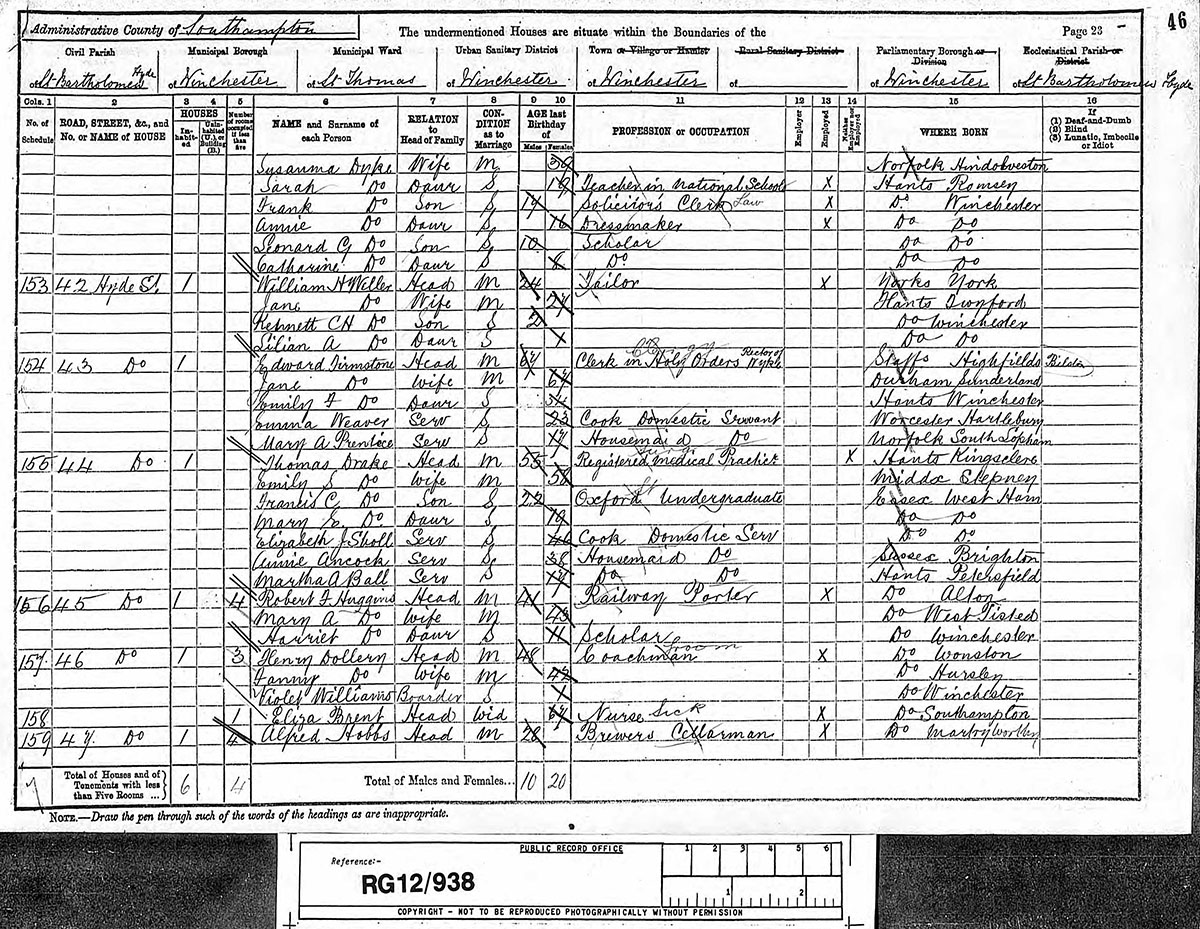 46
Administrative County of Southampton
The undermentioned Houses are situate within the Boundaries of the
Page 23
Civil Parish
Municipal Borough
Municipal Ward
Urban Sanitary District
Town or Village or Hamlet
Rural Sanitary District
Parliamentary Borough or Division
Ecclesiastical Parish or District
of St Bartholomew Hyde
of Winchester
of St Thomas
of Winchester
of Winchester
of
of Winchester
of St Bartholomew Hyde
Cols. 1 2 3 4 5 6 7 8 9 10 11 12 13 14 15 16
No. of Schedule
ROAD, STREET, &c., and No. or NAME of HOUSE
HOUSES
Inhabited
Uninhabited (U.) or Building (B.)
Number of rooms occupied if less than five
NAME and Surname of each Person
RELATION to Head of Family
CONDITION as to Marriage
AGE last Birthday of
Males Females
PROFESSION or OCCUPATION
Employer
Employed
Neither Employer nor Employed
WHERE BORN
If
(1) Deaf-and-Dumb
(2) Blind
(3) Lunatic, Imbecile or Idiot
Susanna Dyke Wife M 39 Norfolk Hindolveston
Sarah Do Daur S 19 Teacher in National Schools X Hants Romsey
Frank Do Son S 17 Solicitor's Clerk Law X Do Winchester
Annie Do Daur S 16 Dressmaker X Do Do
Leonard G Do Son S 10 Scholar Do Do
Catharine Do Daur S 8 Do Do Do
153 42 Hyde St. 1 William H Weller Head M 24 Tailor X Yorks York
Jane Do Wife M 24 Hants Twyford
Kennett C H Do Son S 2 Do Winchester
Lilian A Do Daur S 1 Do Do
154 43 Do 1 Edward Firmstone Head M 67 Clerk in Holy Orders Rector of Wyke Staffs Highfields Bilston
Jane Do Wife M 67 Durham Sunderland
Emily F Do Daur S 34 Hants Winchester
Emma Weaver Serv S 23 Cook Domestic Servant Worcester Hartlebury
Mary A Prentice Serv S 17 Housemaid Do Norfolk South Lopham
155 44 Do 1 Thomas Drake Head M 55 Registered Medical Practicr X Hants Kingsclere
Emily S Do Wife M 58 Middx Stepney
Francis C Do Son S 22 Oxford Undergraduate Essex West Ham
Mary E. Do Daur S 19 Do Do
Elizabeth J Sholl Serv S 46 Cook Domestic Serv Do Do
Annie Ancock Serv S 38 Housemaid Do Sussex Brighton
Martha A Ball Serv S 17 Do Do Hants Petersfield
156 45 Do 1 4 Robert F Huggins Head M 41 Railway Porter X Do Alton
Mary A Do Wife M 43 Do West Tisted
Harriet Do Daur S 11 Scholar Do Winchester
157 46 Do 1 3 Henry Dollery Head M 48 Coachman Groom X Do Wonston
Fanny Do Wife M 42 Do Hursley
Violet Williams Boarder S 1 Do Winchester
158 1 Eliza Brent Head Wid 67 Nurse Sick X Do Southampton
159 47 Do 1 4 Alfred Hobbs Head M 28 Brewers Cellarman X Do Martyr Worthy
7 Total of Houses and of Tenements with less than Five Rooms ... 6 4 Total of Males and Females... 10 20
NOTE.—Draw the pen through such of the words of the headings as are inappropriate.
PUBLIC RECORD OFFICE
1 2 3 4 5 6
Reference:-
RG12/938
1 2
COPYRIGHT - NOT TO BE REPRODUCED PHOTOGRAPHICALLY WITHOUT PERMISSION